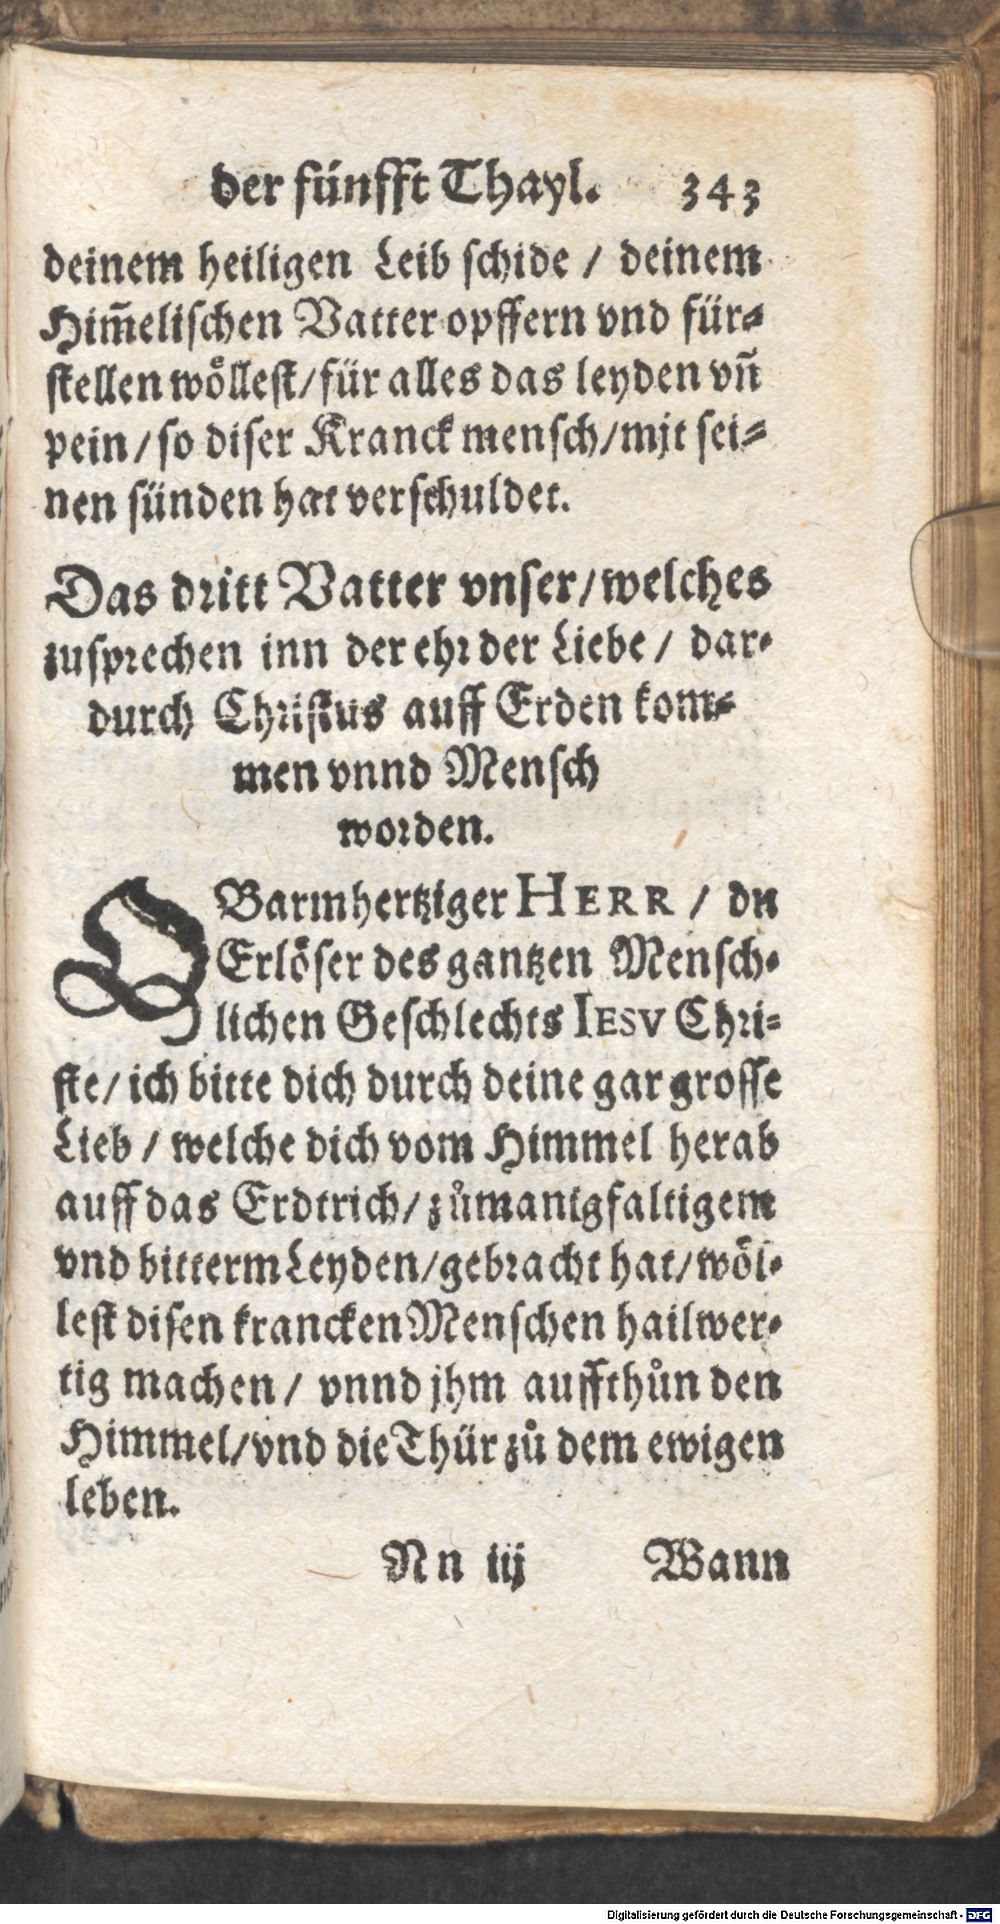 der fünfft Thayl. 343
deinem heiligen Leib schide / deinem
Him̄elischen Vatter opffern vnd für-
stellen wöllest/für alles das leyden vn̄
pein/so diser Kranck mensch/mit sei-
nen sünden hat verschuldet.
Das dritt Vatter vnser/welches
zusprechen inn der ehr der Liebe / dar-
durch Christus auff Erden kom-
men vnnd Mensch
worden.
O Barmhertziger HERR / du
Erlöser des gantzen Mensch-
lichen Geschlechts IESV Chri-
ste/ich bitte dich durch deine gar grosse
Lieb / welche dich vom Himmel herab
auff das Erdtrich/zůmanigfaltigem
vnd bitterm Leyden/gebracht hat/wöl-
lest disen krancken Menschen hailwer-
tig machen/ vnnd jhm auffthůn den
Himmel/vnd die Thür zů dem ewigen
leben.
Nn iij Wann
Digitalisierung gefördert durch die Deutsche Forschungsgemeinschaft - DFG